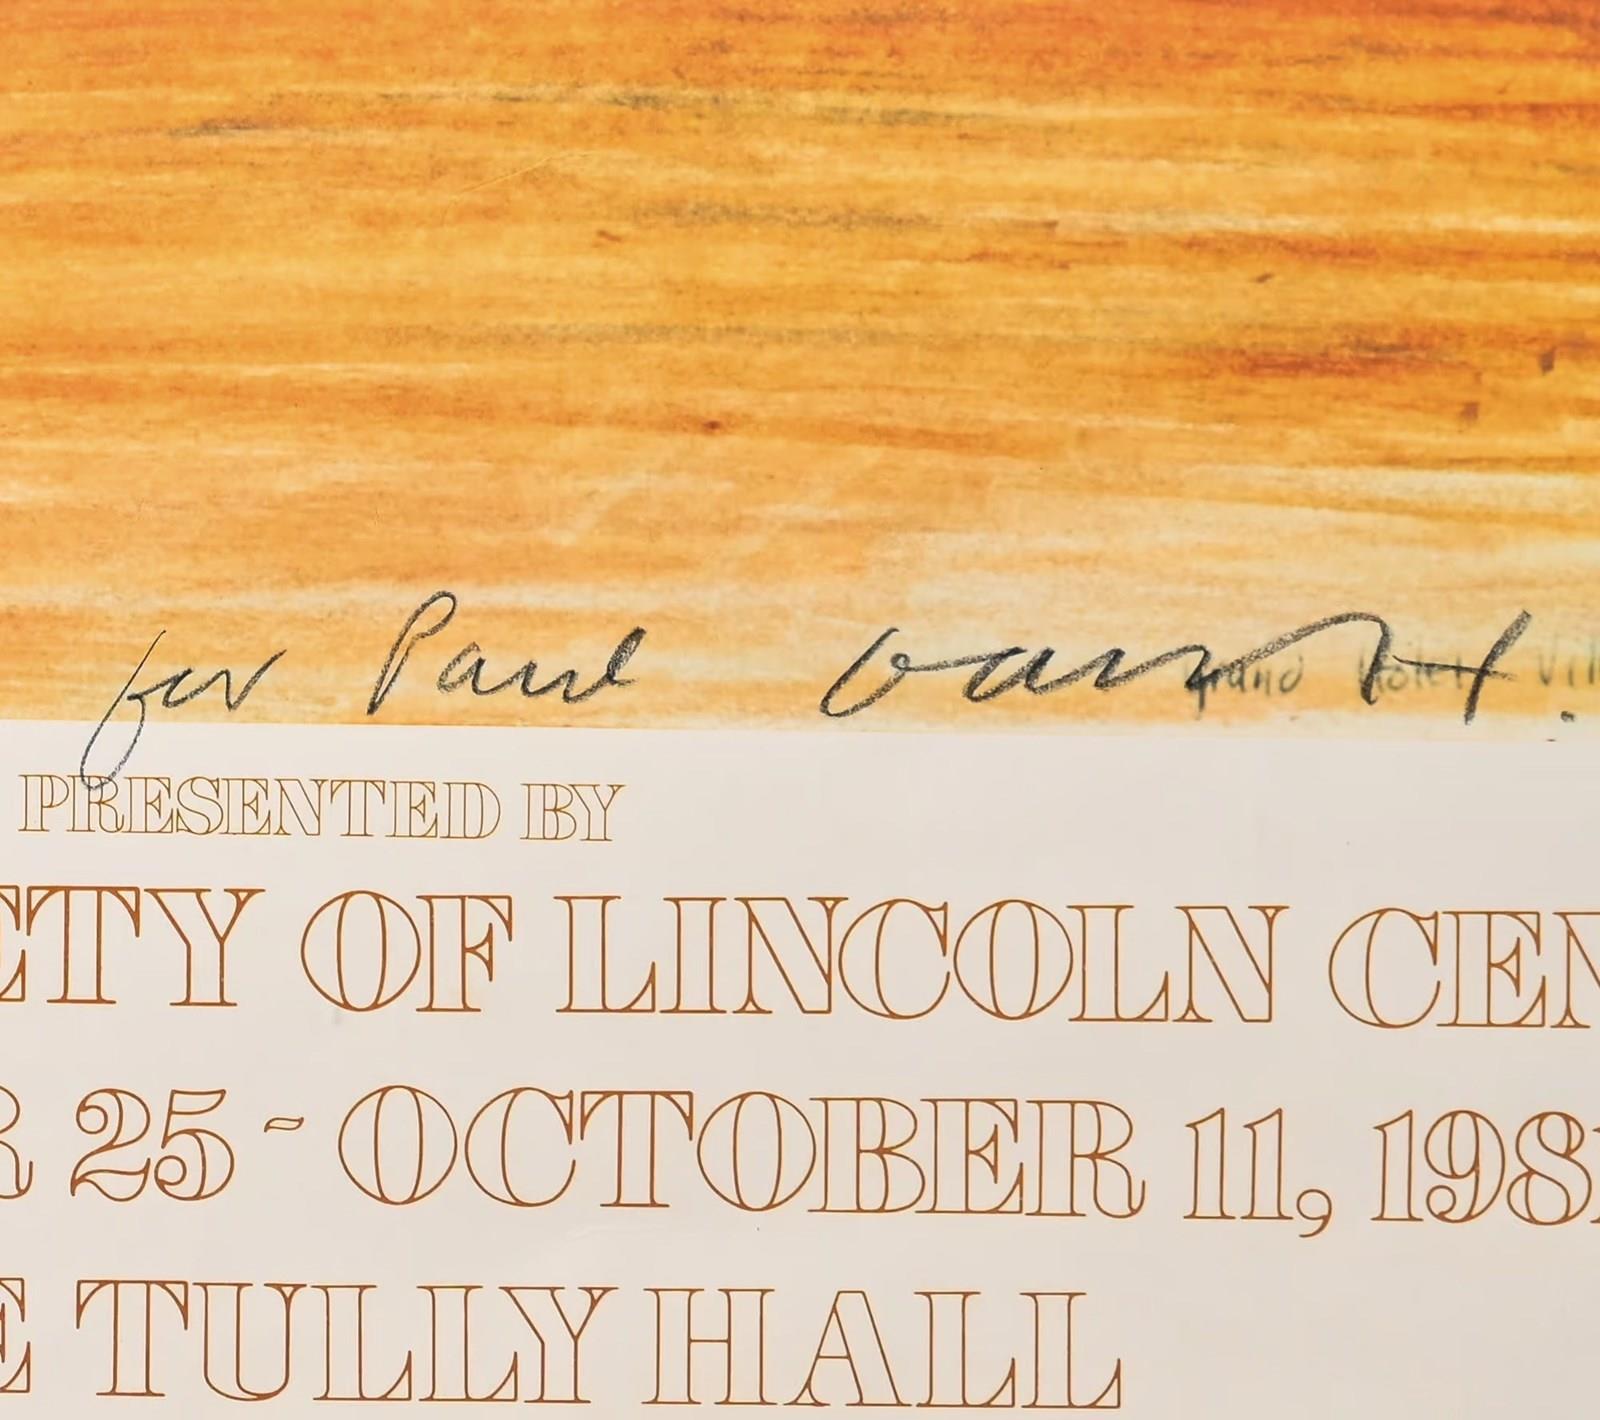 for Paul David H.
PRESENTED BY
ETY OF LINCOLN CEN
R 25 - OCTOBER 11, 198
E TULLY HALL